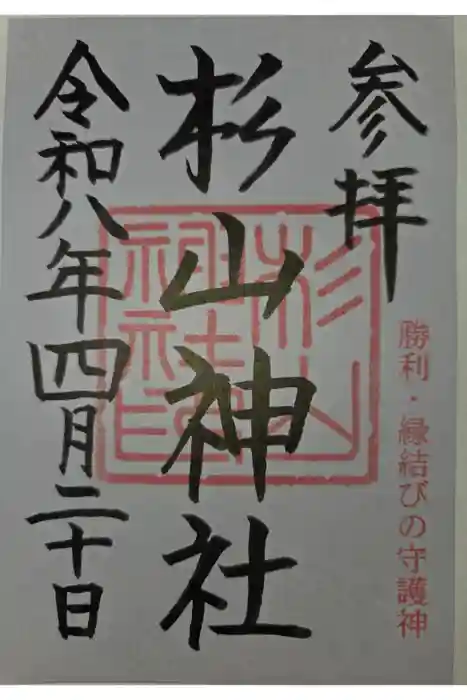 参拝
勝利・縁結びの守護神
杉山神社
杉山神社印
令和八年四月二十日